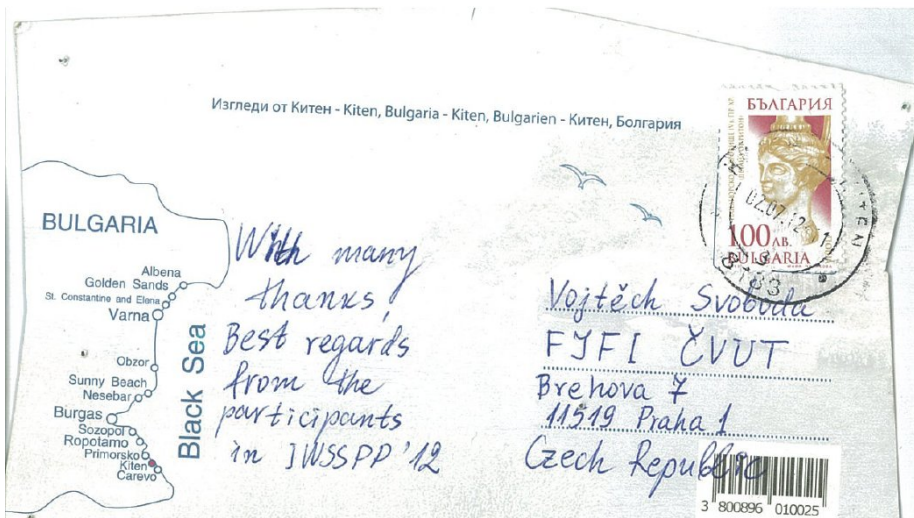 Изгледи от Китен - Kiten, Bulgaria - Kiten, Bulgarien - Китен, Болгария
БЪЛГАРИЯ
100 ЛВ.
BULGARIA
02.07.12
8183
BULGARIA
Albena
Golden Sands
St. Constantine and Elena
Varna
Obzor
Sunny Beach
Nesebar
Burgas
Sozopol
Ropotamo
Primorsko
Kiten
Carevo
Black Sea
With many
thanks!
Best regards
from the
participants
in IWSSPP'12
Vojtěch Svoboda
FJFI ČVUT
Brehova 7
11519 Praha 1
Czech Republic
3 800896 010025